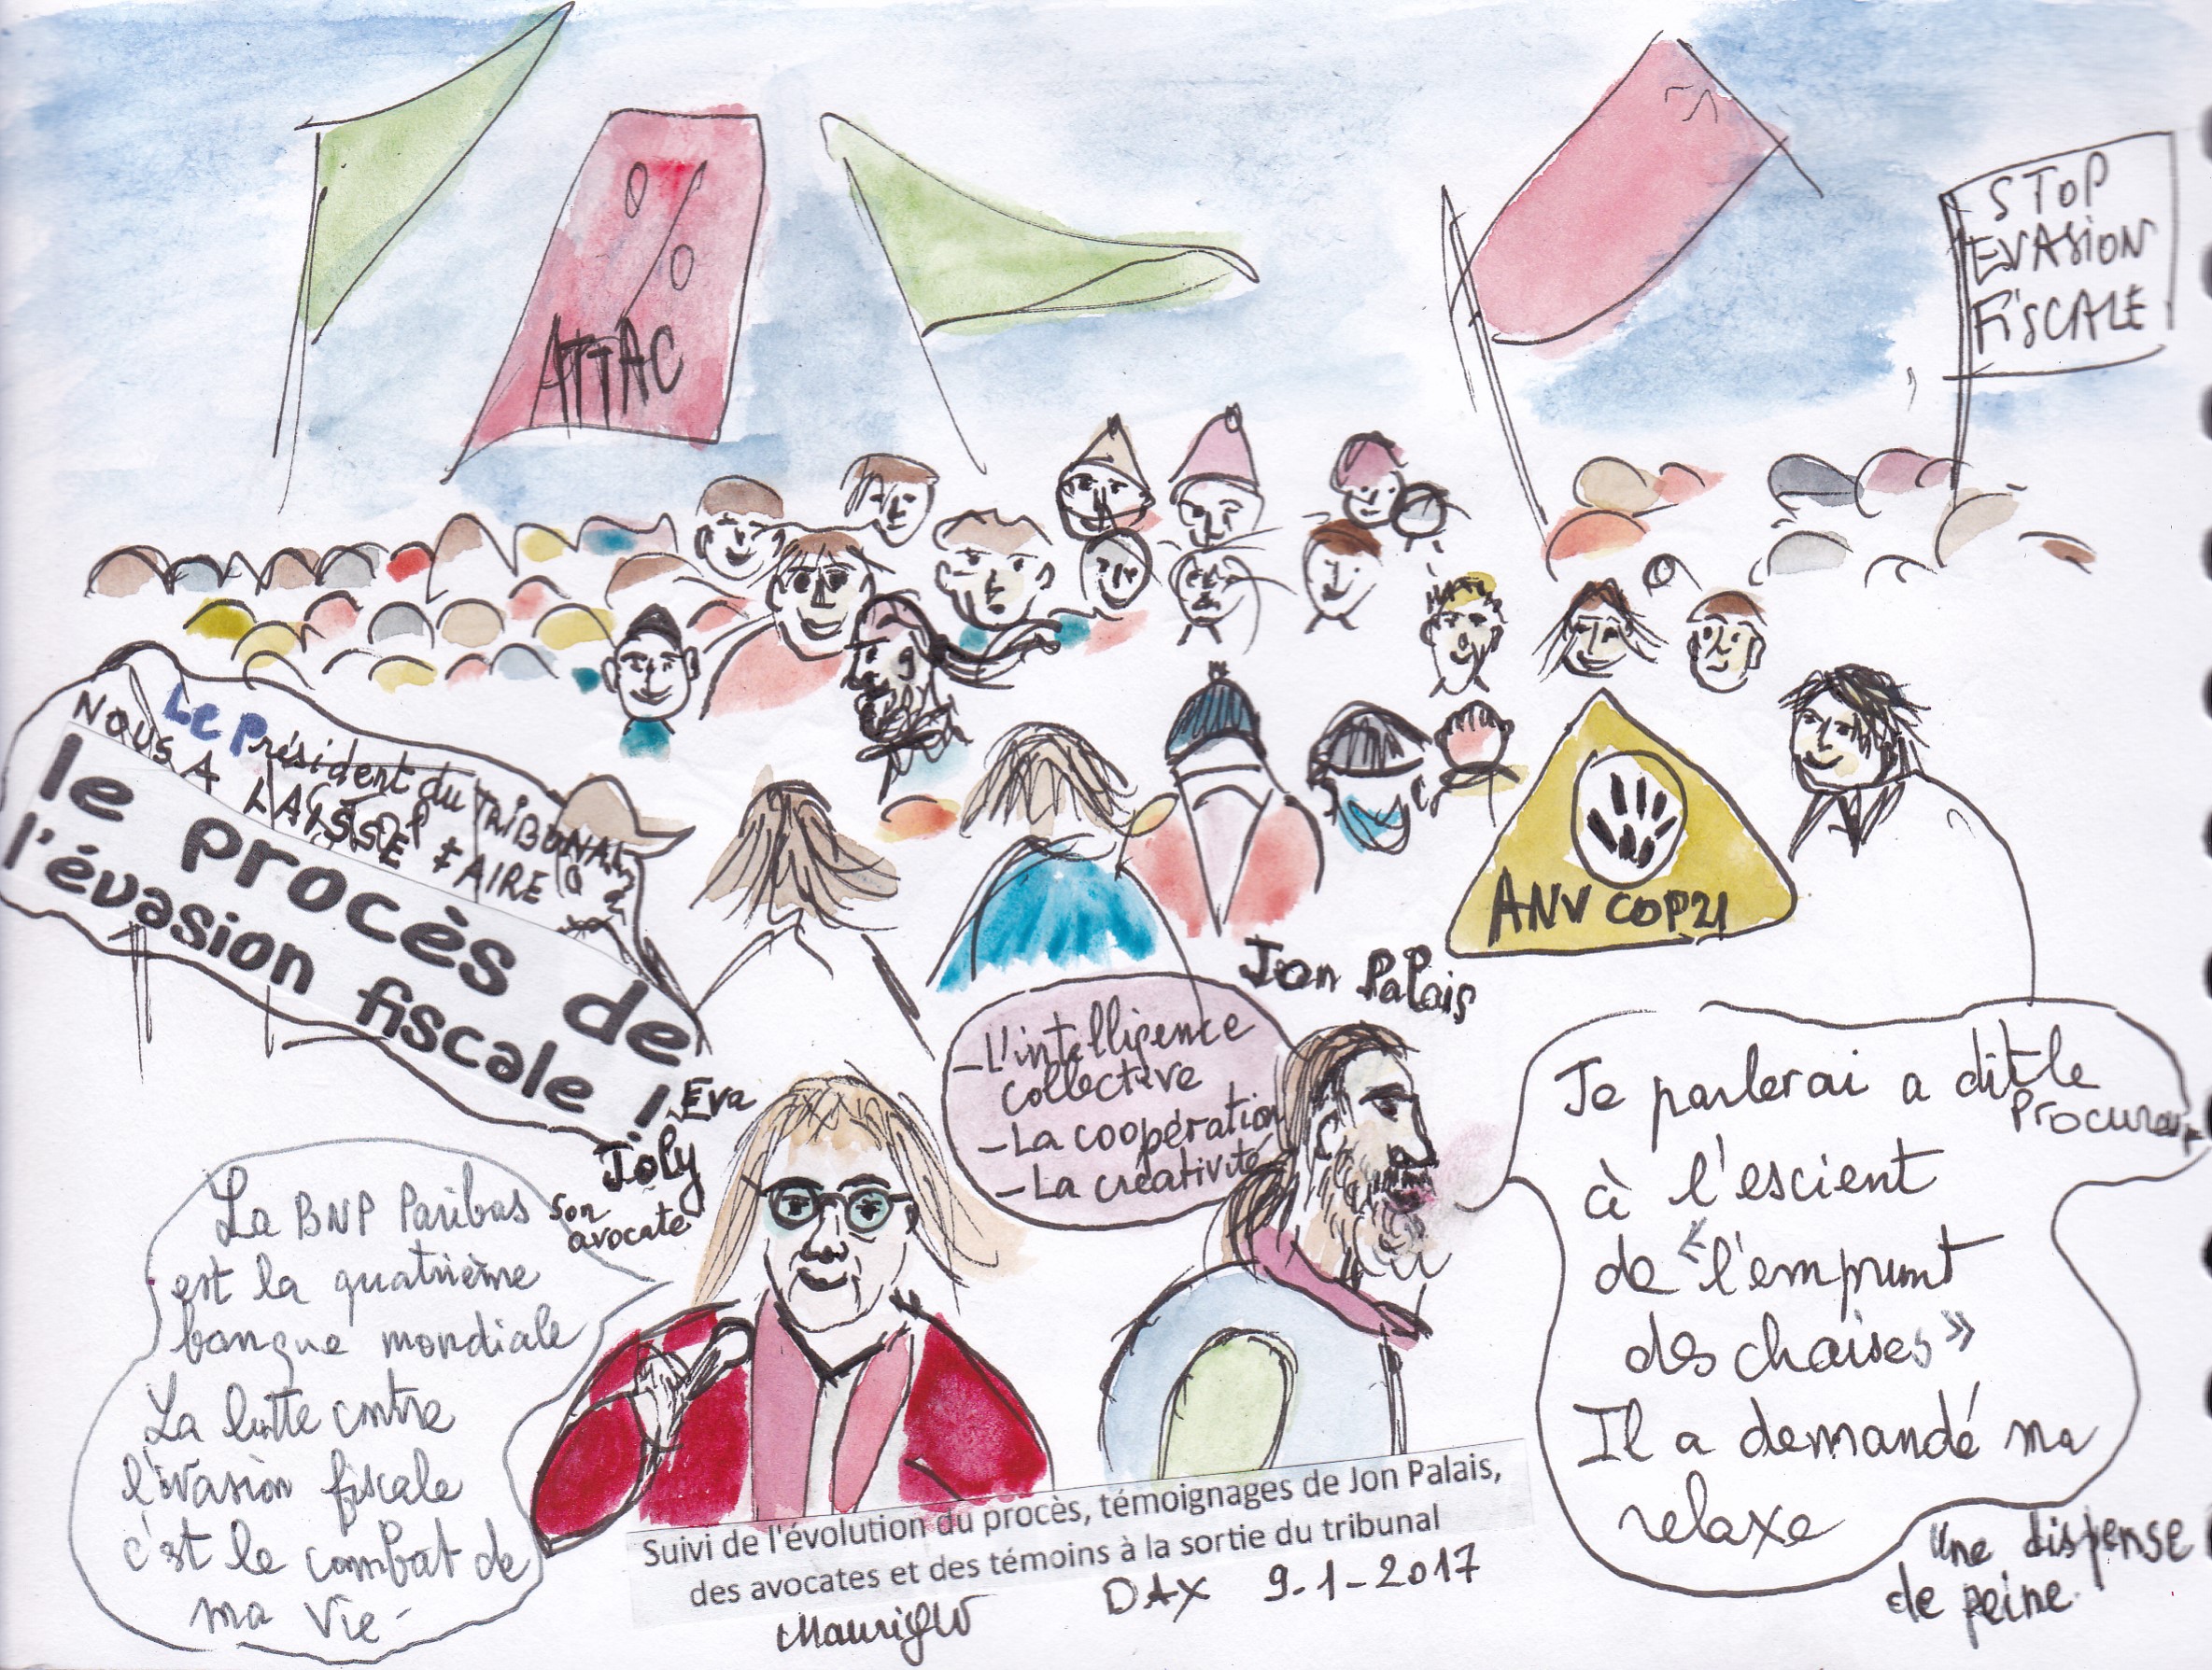 %
ATTAC
STOP
EVASION
FISCALE
Le Président du TRIBUNAL
NOUS A LAISSÉ FAIRE
le procès de
l'évasion fiscale !
ANV COP21
Jon Palais
- L'intelligence
collective
- La coopération
- La créativité
Eva
Joly
son
avocate
La BNP Paribas
est la quatrième
banque mondiale
La lutte contre
l'évasion fiscale
c'est le combat de
ma vie -
Je parlerai a dit le
Procureur
à l'escient
de "l'emprunt
des chaises"
Il a demandé ma
relaxe
Une dispense
de peine.
Suivi de l'évolution du procès, témoignages de Jon Palais,
des avocates et des témoins à la sortie du tribunal
DAX 9-1-2017